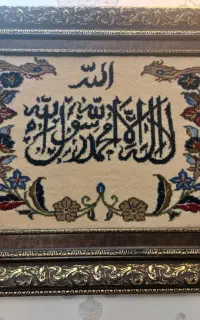 الله
لا اله الا الله محمد رسول الله